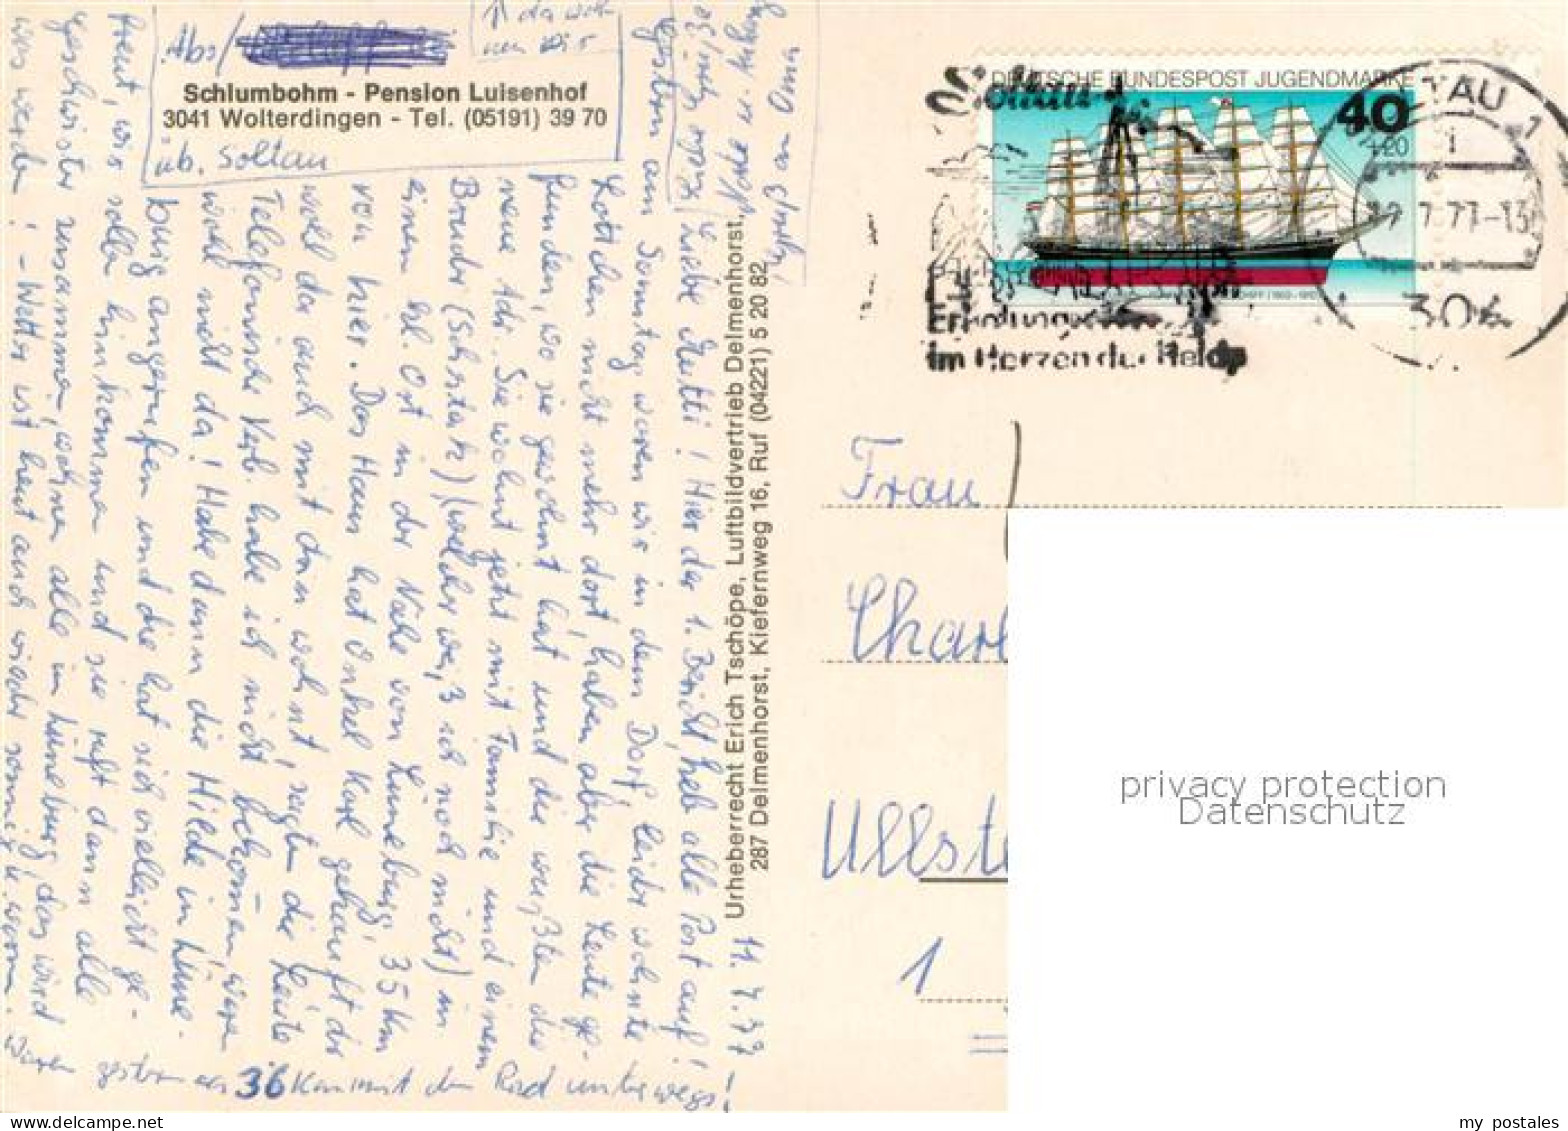 Abs/
↑ da woh-
nen wir
Schlumbohm - Pension Luisenhof
3041 Wolterdingen - Tel. (05191) 39 70
üb. Soltau
11. 7. 77
Liebe Mutti! Hier der 1. Bericht, heb alle Post auf!
Gestern am Sonntag waren wir in dem Dorf, leider wohnte
Lottchen nicht mehr dort, haben aber die Leute ge-
funden, wo sie gewohnt hat und die wußten die
neue Adr. Sie wohnt jetzt mit Familie und einem
Bruder (Schratz) (welcher weiß ich noch nicht) in
einem kl. Ort in der Nähe von Lüneburg, 35 Km
von hier. Das Haus hat Onkel Karl gekauft der
wohl da auch mit drin wohnt, sagten die Leute.
Telefonische Verb. habe ich nicht bekommen, waren
wohl nicht da! Habe dann die Hilde in Lüne-
burg angerufen und die hat sich vielleicht ge-
freut, wir sollen hinkommen und sie ruft dann alle
Geschwister zusammen, wohnen alle in Lüneburg, das wird
was werden! - Wetter ist heut auch wieder sonnig u. warm.
Waren gestern ca 36 Km mit dem Rad unterwegs!
an Oma
Urheberrecht Erich Tschöpe, Luftbildvertrieb Delmenhorst,
287 Delmenhorst, Kiefernweg 16, Ruf (04221) 5 20 82
DEUTSCHE BUNDESPOST JUGENDMARKE
40
+20
Soltau
Erholung
im Herzen der Heide
TAU 1
7.77-13
304
Frau
Charl
Ullste
1
privacy protection
Datenschutz
my postales